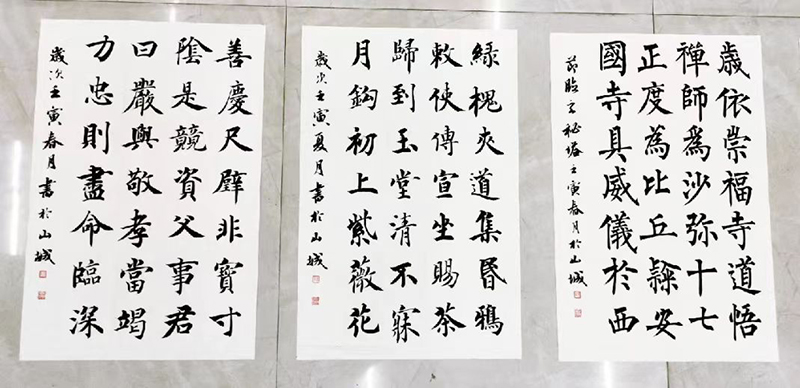 歲依崇福寺道悟
禪師為沙弥十七
正度為比丘隸安
國寺具威儀於西
節臨玄秘塔壬寅春月於山城
緑槐夾道集昏鴉
敕使傳宣坐賜茶
歸到玉堂清不寐
月鈎初上紫薇花
歲次壬寅夏月書於山城
善慶尺璧非寶寸
陰是競資父事君
曰嚴與敬孝當竭
力忠則盡命臨深
歲次壬寅春月書於山城